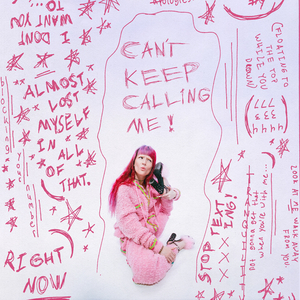 CAN'T
KEEP
CALLING
ME!
I DON'T
WANT YOU
TO...
ALMOST
LOST
MYSELF
IN
ALL
OF
THAT.
blocking your number
RIGHT
NOW
STOP TEXTING!
XXXX
(FLOATING TO
THE TOP
WHILE YOU
DROWN)
LOOK AT ME WALK AWAY
FROM YOU